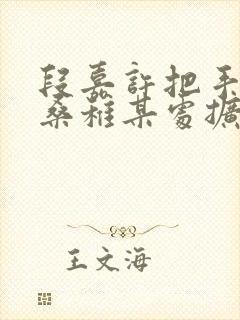 段嘉許把手
桑稚某處擴
王文海